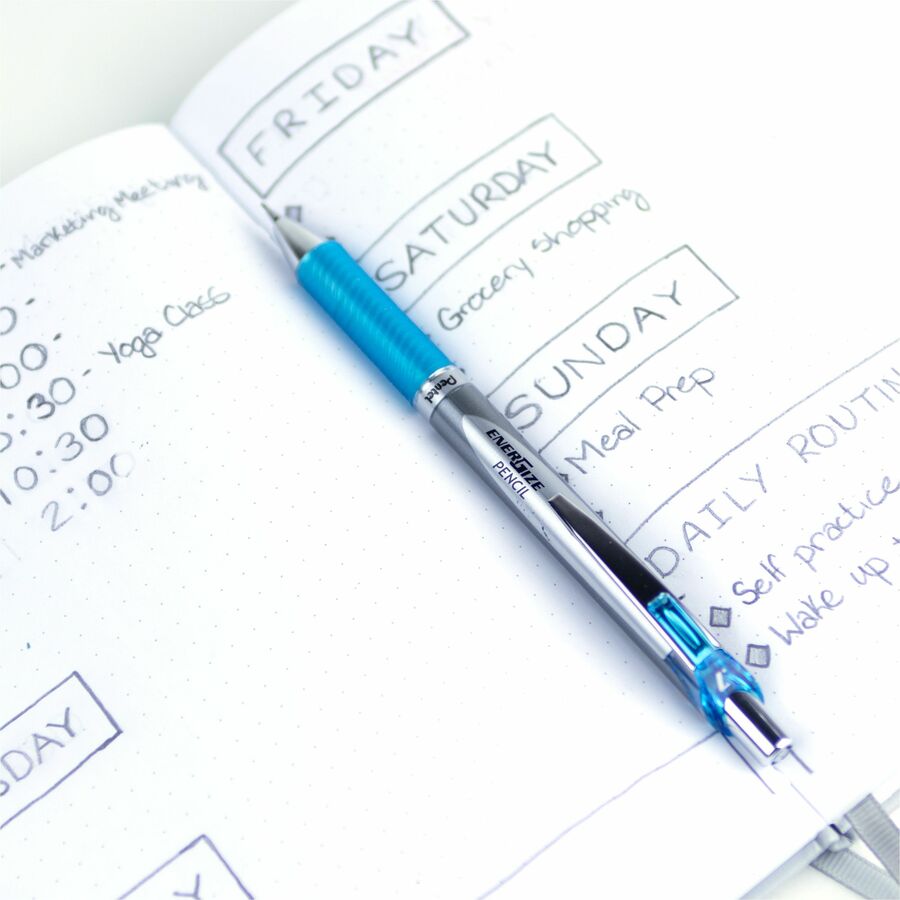 - Marketing Meeting
0-
00-
:30 - Yoga Class
10:30
2:00
DAY
Y
FRIDAY
SATURDAY
Grocery shopping
SUNDAY
Meal Prep
DAILY ROUTIN
Self practice
Wake up +
Pentel
ENERGIZE
PENCIL